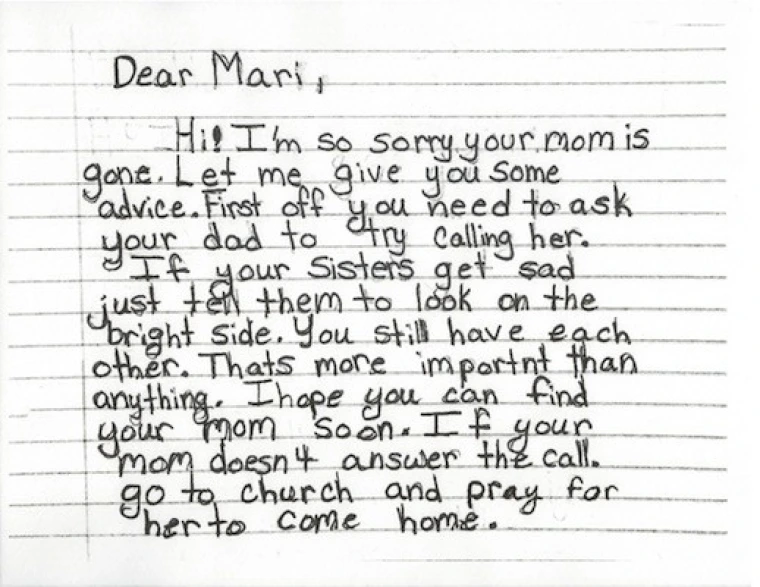 Dear Mari,
Hi! I'm so sorry your mom is
gone. Let me give you some
advice. First off you need to ask
your dad to try calling her.
If your Sisters get sad
just tell them to look on the
bright side. You still have each
other. Thats more importnt than
anything. I hope you can find
your mom soon. If your
mom doesn't answer the call.
go to church and pray for
her to come home.